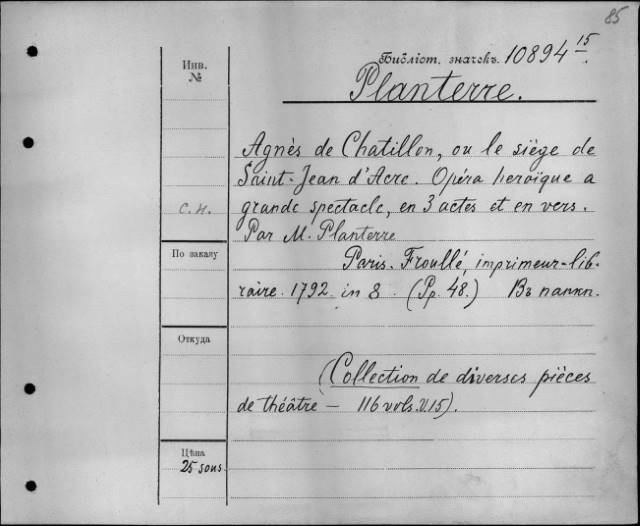 85
Инв.
№
Библіот. значекъ. 10894 15.
Planterre.
Agnès de Chatillon, ou le siège de
Saint-Jean d'Acre. Opéra heroïque a
grande spectacle, en 3 actes et en vers.
с.н.
Par M. Planterre
По заказу
Paris. Froullé, imprimeur-lib-
raire. 1792. in 8. (Pp. 48.) Въ папкѣ.
Откуда
(Collection de diverses pièces
de théâtre — 116 vols. V.15).
Цѣна
25 sous.